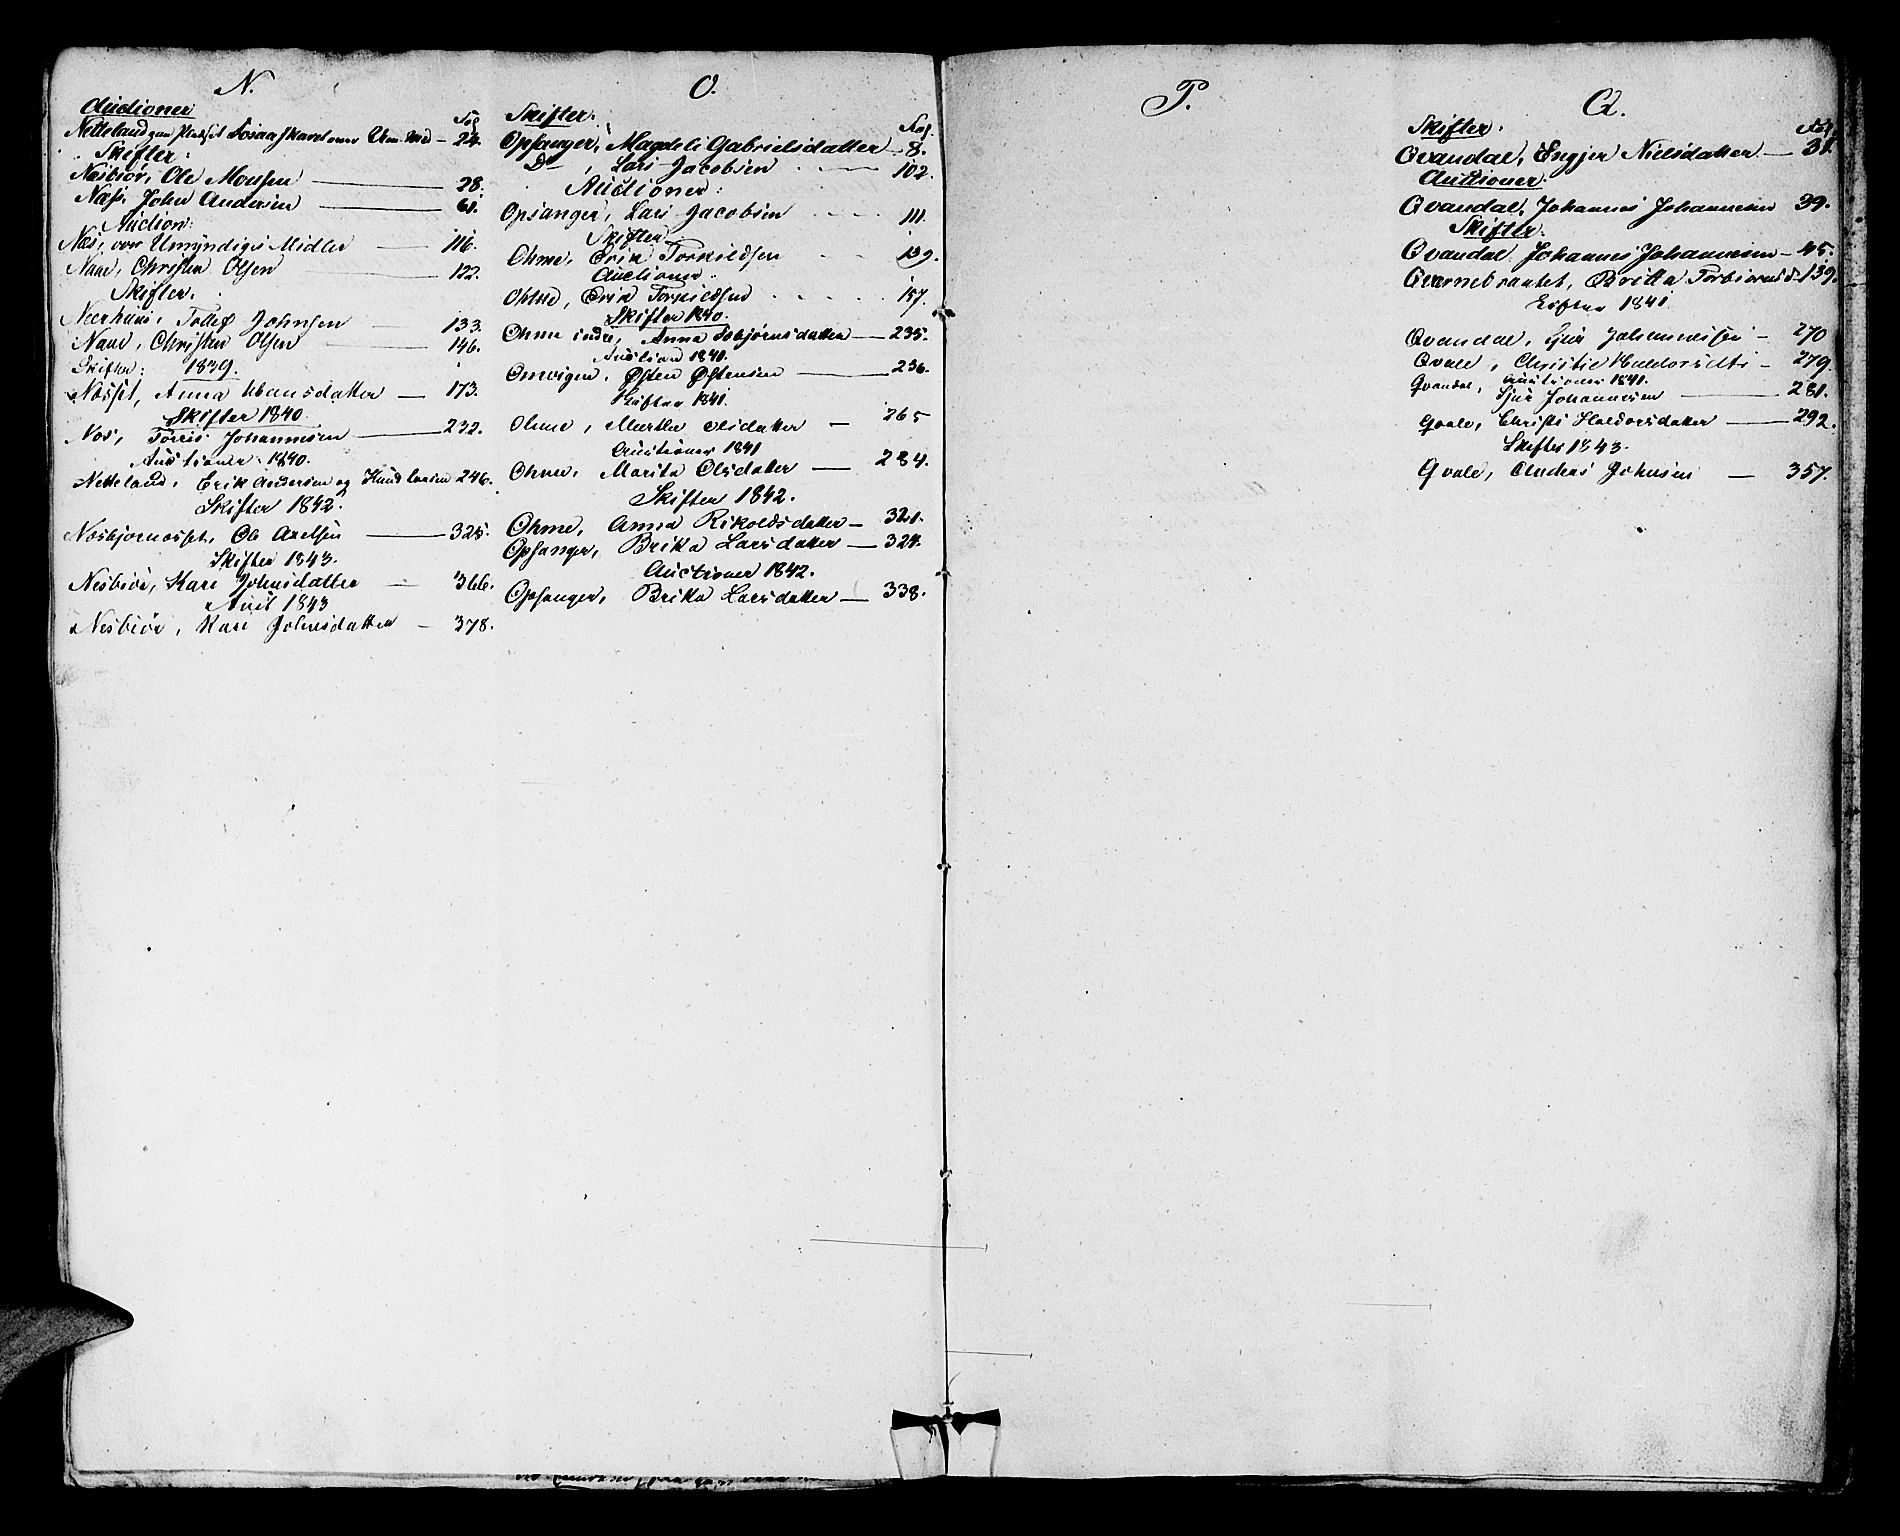 N.
Auctioner
Fol.
Netteland 24.
Skifter:
Næsbiør, Ole Monsen 28.
Næss, John Andersen 61.
Auction:
Næs, over Umyndiges Midler 116.
Naae, Christen Olsen 122.
Skifter.
Neerhuus, Tollef Johnsen 133.
Naae, Christen Olsen 146.
Skifter: 1839.
Næsset, Anna Hansdatter 173.
Skifter 1840.
Nos, Torris Johannesen 232.
Auctioner 1840.
Netteland, Erik Andersen og Knud Larsen 246.
Skifter 1842.
Næsbjørnæsset, Ole Axelsen 325.
Skifter 1843.
Nesbiør, Kari Johnsdatter 366.
Auct 1843
Nesbiør, Kari Johnsdatter 378.
O.
Skifter.
Fol.
Opsanger, Magdeli Gabrielsdatter 8.
Do, Lars Jacobsen 102.
Auctioner:
Opsanger, Lars Jacobsen 111.
Skifter
Ohme, Erik Torkildsen 139.
Auctioner:
Ohme, Erik Torkildsen 157.
Skifter 1840.
Ohme indre, Anna Tobjørnsdatter 235.
Auctioner 1840.
Omvigen, Østen Østensen 236.
Skifter 1841.
Ohme, Marthe Olsdatter 265
Auctioner 1841
Ohme, Marita Olsdatter 284.
Skifter 1842.
Ohme, Anna Rikoldsdatter 321.
Opsanger, Britta Larsdatter 324.
Auctioner 1842.
Opsanger, Britta Larsdatter 338.
P.
Q.
Skifter.
Fol.
Qvandal, Engjer Nielsdatter 31.
Auctioner.
Qvandal, Johannes Johannesen 39.
Skifter.
Qvandal Johannes Johannesen 45.
Qvernebrautet, Britta Torbiørnsd. 139.
Skifter 1841.
Qvandal, Sjur Johannessen 270
Qvale, Christie Haldorsdtr 279
Auctioner 1841.
Qvandal, Sjur Johannesen 281.
Qvale, Christi Haldorsdatter 292.
Skifter 1843.
Qvale, Anders Johnsen 357.